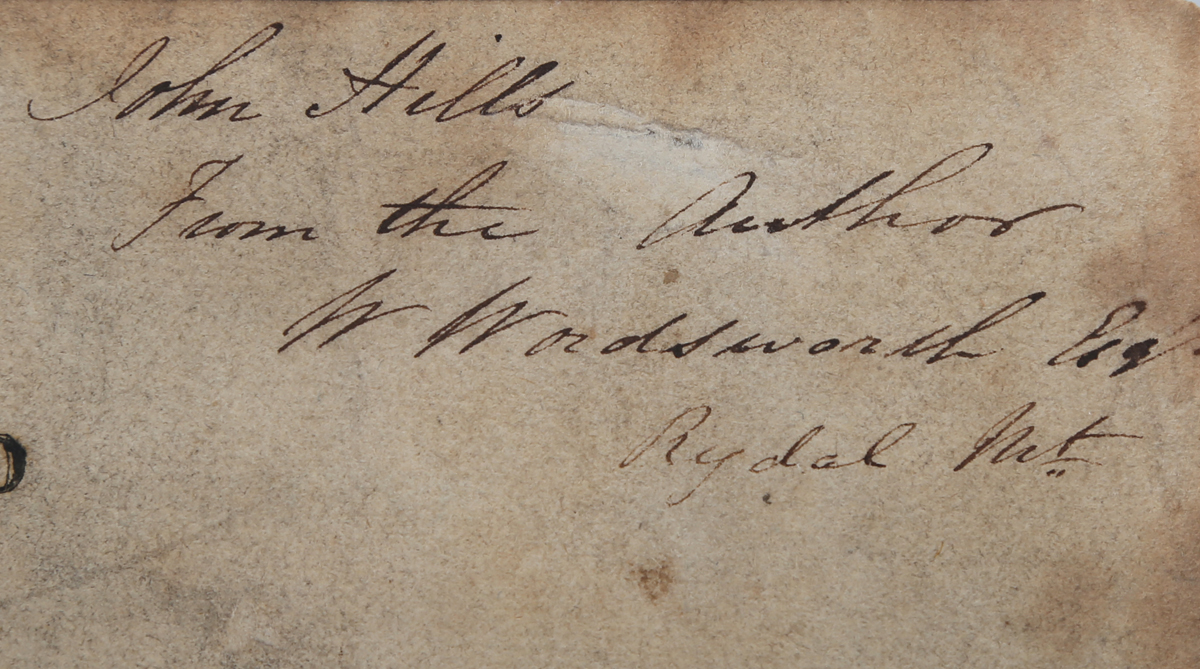 John Hills
From the Author
W Wordsworth Esqr
Rydal Mt